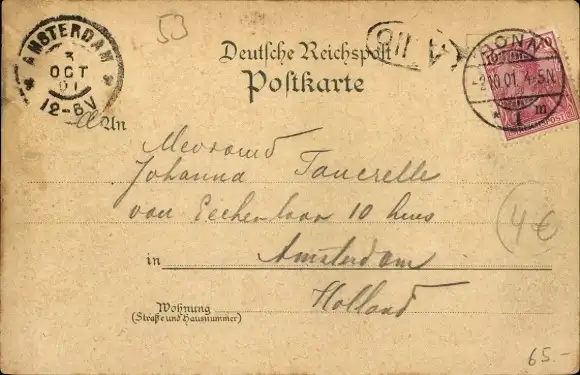 53
AMSTERDAM
3
OCT
01
12-6V
Deutsche Reichspost
Postkarte
BONN
2.10.01. 4-5N
* 1 m
An
Mevrouw
Johanna Taurelle
van Eeghenlaan 10 huis
in Amsterdam
Holland
4€
Wohnung
(Straße und Hausnummer)
65.-